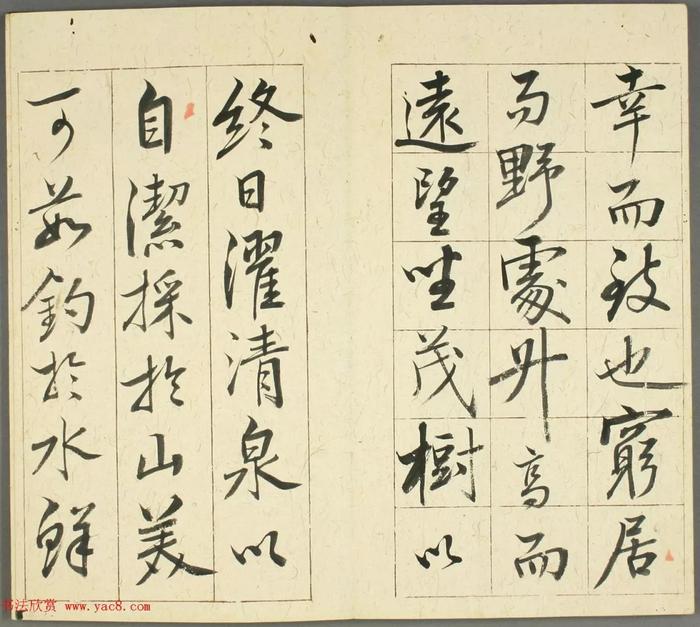 幸而致也窮居
而野處升高而
遠望坐茂樹以
終日濯清泉以
自潔採於山美
可茹釣於水鮮
书法欣赏 www.yac8.com